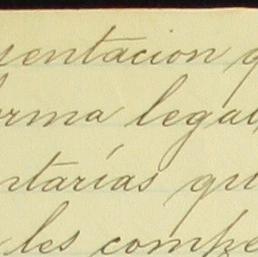 sentacion q
orma legal
ntarías qu
les compe